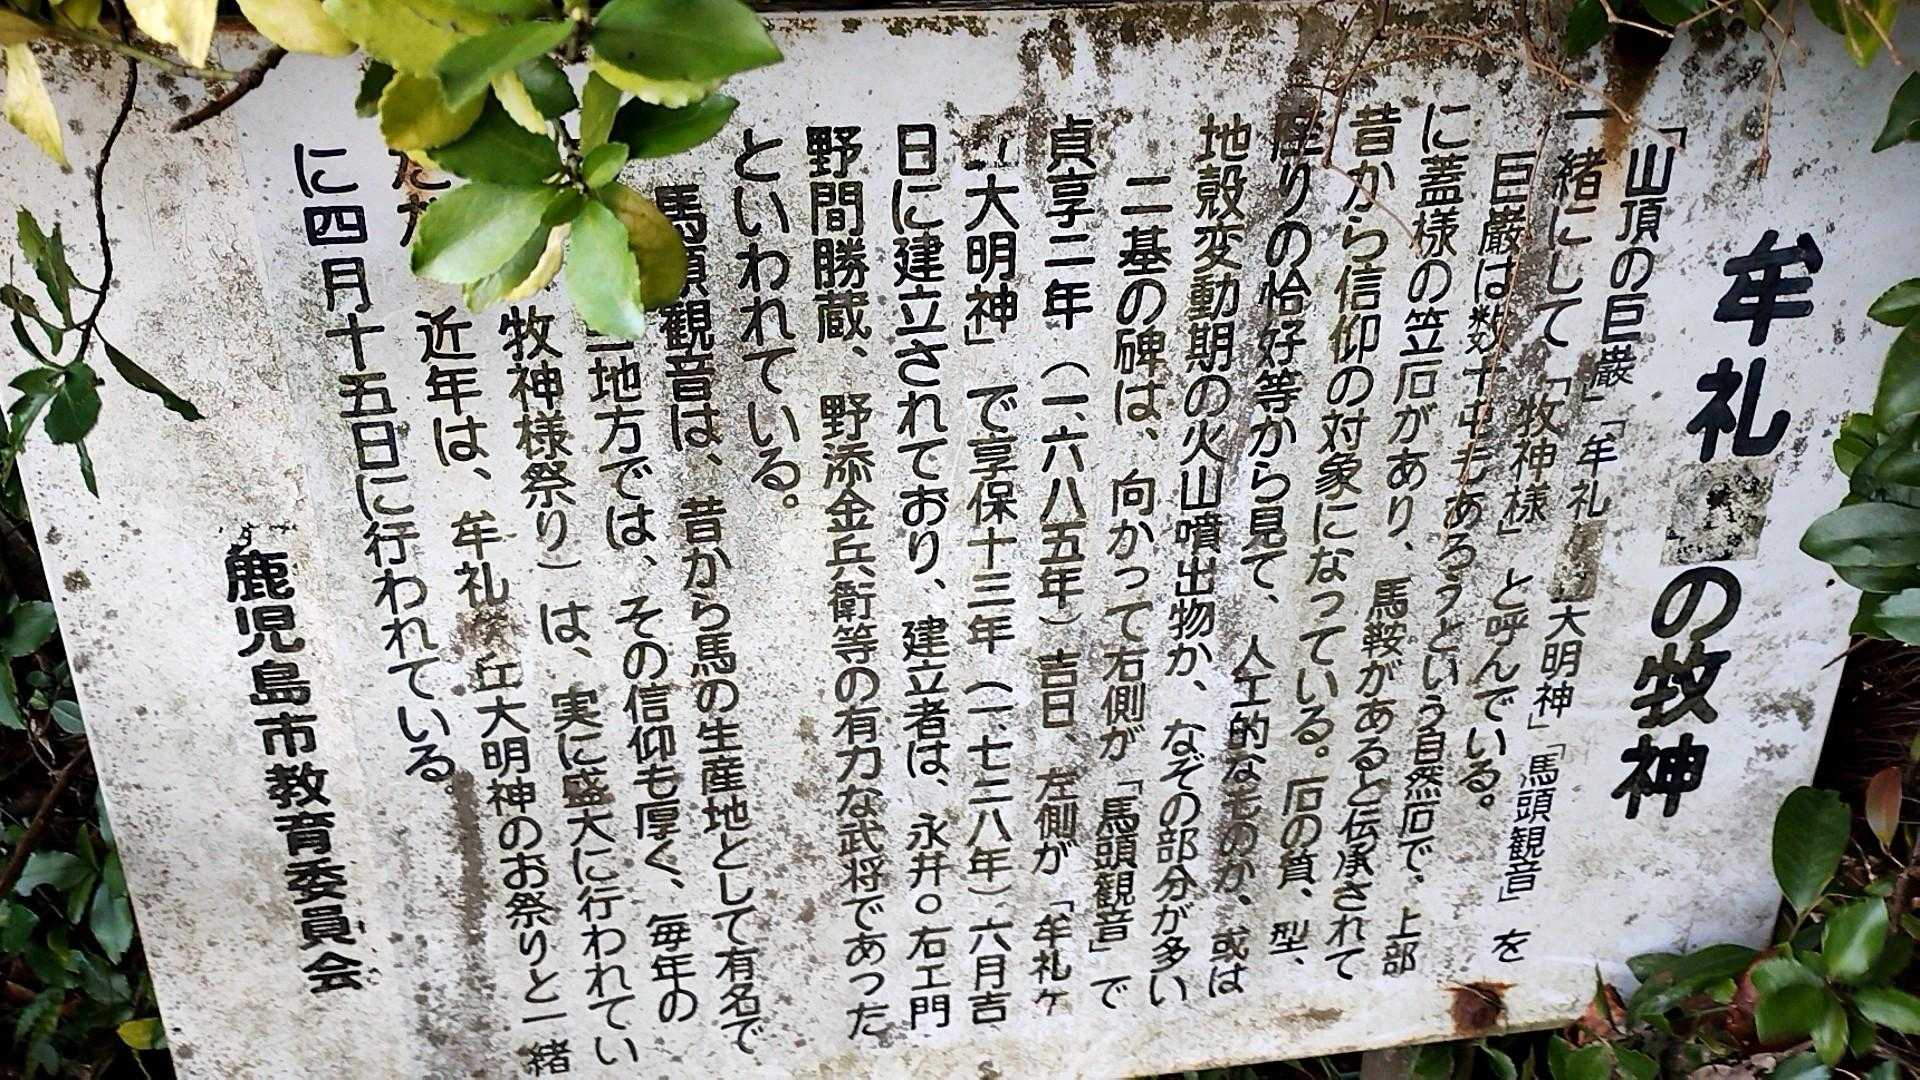 牟礼 の牧神
「山頂の巨巌」「牟礼 大明神」「馬頭観音」を
一緒にして「牧神様」と呼んでいる。
巨巌は数十屯もあろうという自然石で、上部
に蓋様の笠石があり、馬鞍があると伝承されて
昔から信仰の対象になっている。石の質、型、
座りの恰好等から見て、人工的なものか、或は
地殻変動期の火山噴出物か、なぞの部分が多い
二基の碑は、向かって右側が「馬頭観音」で
貞享二年(一、六八五年)吉日、左側が「牟礼ヶ
大明神」で享保十三年(一、七二八年)六月吉
日に建立されており、建立者は、永井○右エ門
野間勝蔵、野添金兵衛等の有力な武将であった
といわれている。
馬頭観音は、昔から馬の生産地として有名で
地方では、その信仰も厚く、毎年の
牧神様祭り)は、実に盛大に行われてい
近年は、牟礼 丘大明神のお祭りと一緒
に四月十五日に行われている。
鹿児島市教育委員会